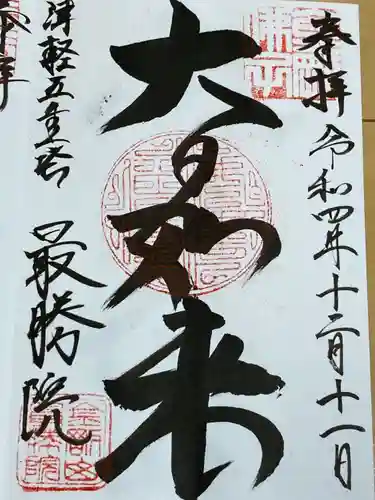 奉拝
令和四年十二月十一日
大日如来
津軽五重塔
最勝院
拝